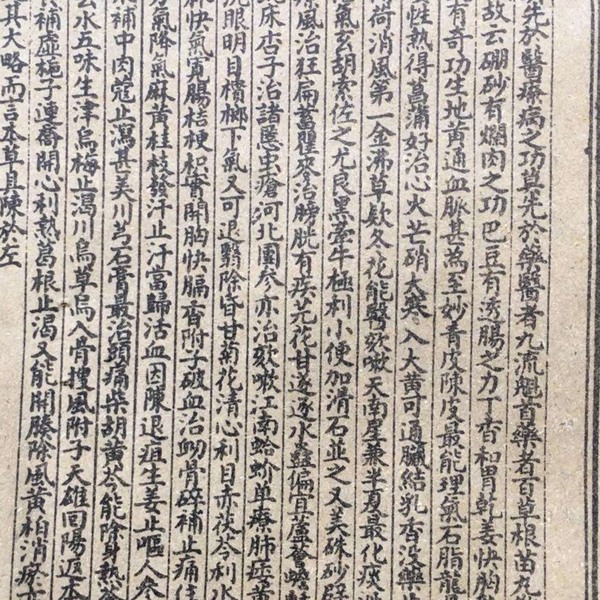 先於醫療病之功莫先於藥醫者九流魁首藥者百草根苗九
故云硼砂有爛肉之功巴豆有透腸之力丁香和胃乾姜快胸
有奇功生地黄通血脈甚為至妙青皮陳皮最能理氣石脂龍
性熱得菖蒲好治心火芒硝大寒入大黄可通臟結乳香沒藥
荷消風第一金沸草欸冬花能醫欬嗽天南星兼半夏最化痰
氣玄胡索佐之尤良黑牽牛極利小便加滑石並之又美硃砂
風治狂扁蓄瞿麥治膀胱有疾芫花甘遂逐水蠱偏宜蘆薈蟾
床杏子治諸惡虫瘡河北團參亦治欬嗽江南蛤蚧単療肺
洗眼明目檳榔下氣又可退翳除昏甘菊花清心利目赤茯苓利水
快氣寛腸桔梗枳實開胸快膈香附子破血治崩骨碎補止痛
氣降氣麻黄桂枝發汗止汗當歸活血因陳退疸生姜止嘔人參
補中肉寇止瀉甚美川芎石膏最治頭痛柴胡黄芩能除身熱
水五味生津烏梅止渴川烏草烏入骨搜風附子天雄回陽返本
補虚梔子連喬開心利熱葛根止渴又能開腠除風黄柏消瘀
其大略而言本草具陳於左